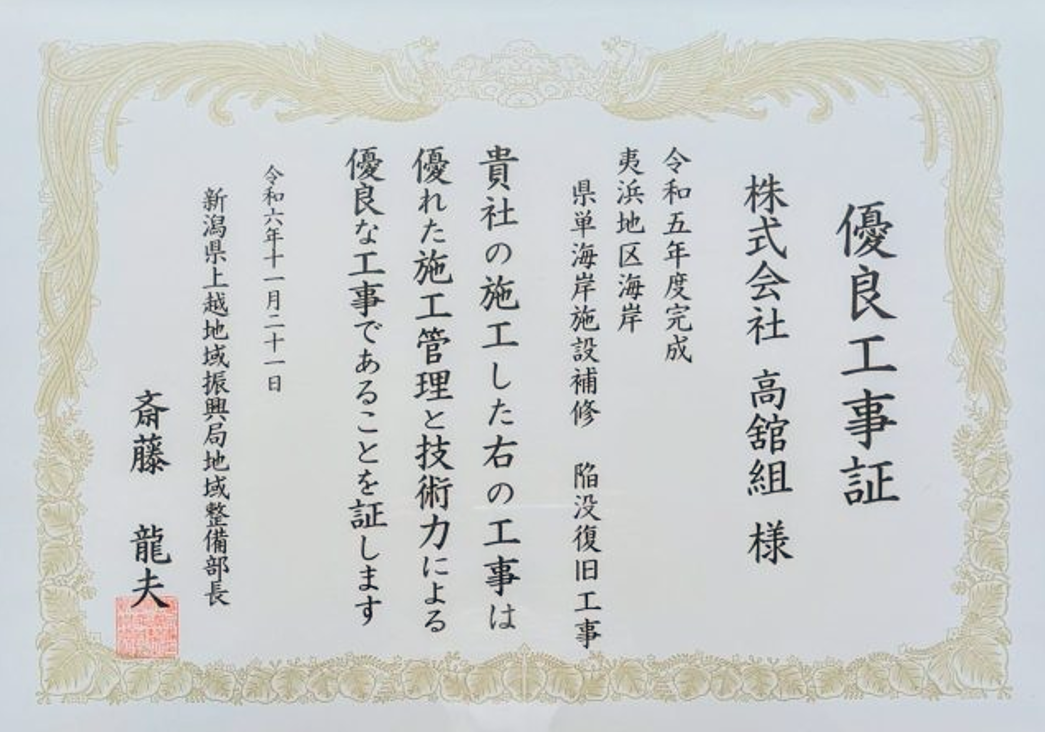 優良工事証
株式会社 高舘組 様
令和五年度完成
夷浜地区海岸
県単海岸施設補修 陥没復旧工事
貴社の施工した右の工事は
優れた施工管理と技術力による
優良な工事であることを証します
令和六年十一月二十一日
新潟県上越地域振興局地域整備部長
斎藤 龍夫